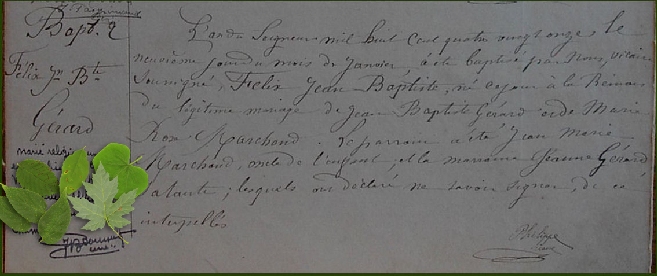 Bapt. 2
Félix Jn Bte
Gérard
marié
L'an du Seigneur mil huit cent quatre vingt onze, le
neuvième jour du mois de Janvier, a été baptisé par Nous, vicaire
soussigné, Félix Jean-Baptiste, né ce jour à la
du légitime mariage de Jean Baptiste Gérard et de Marie
Rose Marchand. Le parrain a été Jean Marie
Marchand, oncle de l'enfant, et la marraine Jeanne Gérard
sa tante; lesquels ont déclaré ne savoir signer, de ce
interpellés
Philippe